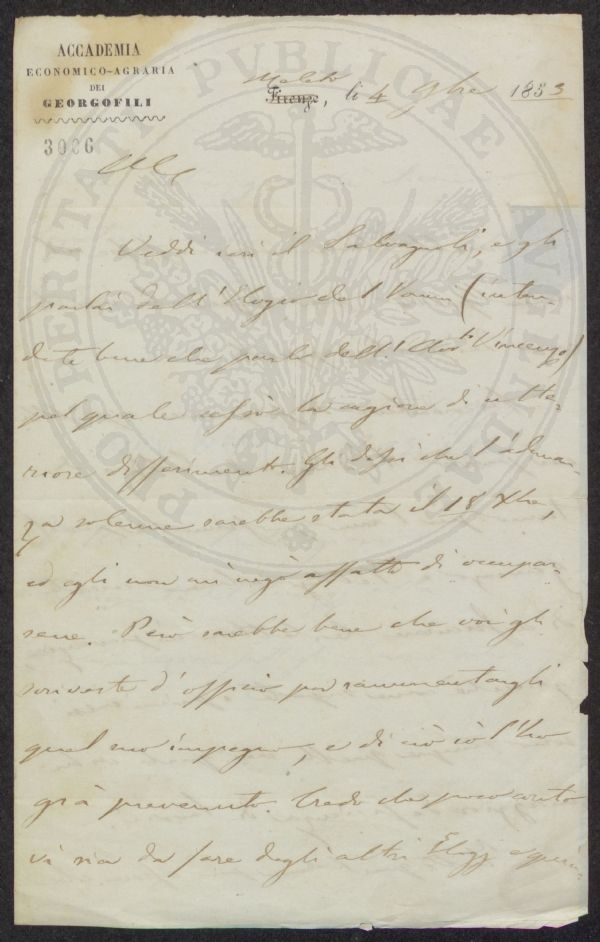 ACCADEMIA
ECONOMICO-AGRARIA
DEI
GEORGOFILI
3096
Firenze, li 4 9bre 1853
Veddi ieri il Salvagnoli, e gli
parlai dell'Elogio del Vanni (inten-
dete bene che parlo dell'Avv.to Vincenzo)
pel quale cessò la cagione di ulte-
riore differimento. Gli dissi che l'adunan-
za solenne sarebbe stata il 18 Xbre,
ed egli non mi negò affatto di occupar-
sene. Però sarebbe bene che voi gli
scriveste d'officio per rammentargli
quel suo impegno, e di ciò io l'ho
già prevenuto. Credo che poco conto
vi sia da fare degli altri Elogj
POSTERITATI PVBLICAE